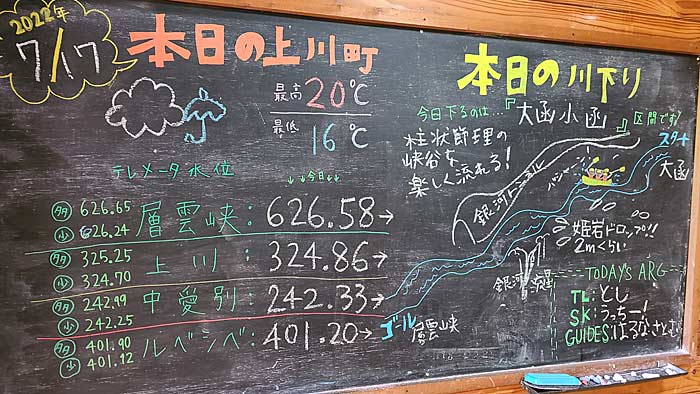 2022年
7/17
本日の上川町
最高 20℃
最低 16℃
テレメータ水位
↓↓今日↓↓
多 626.65
少 626.24
層雲峡: 626.58→
多 325.25
少 324.70
上川: 324.86→
多 242.99
少 242.25
中愛別: 242.33→
多 401.90
少 401.12
ルベシベ: 401.20→
本日の川下り
今日下るのは…『大函小函』区間です!
柱状節理の
峡谷を
楽しく流れる!
スタート
大函
銀河トンネル
姫岩ドロップ!!
2mくらい
銀河
流星
ゴール
層雲峡
TODAY'S ARG
TL: とし
SK: うっちー!
GUIDES: はるな さとむ